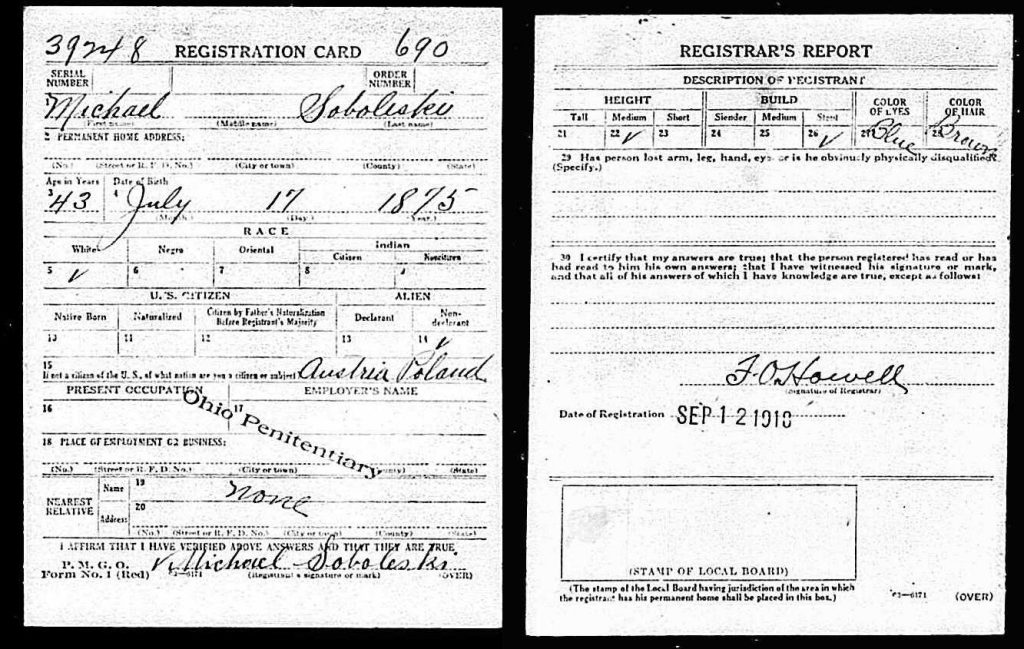 39248 REGISTRATION CARD 690
SERIAL NUMBER
ORDER NUMBER
1 Michael Soboleskii
(First name) (Middle name) (Last name)
2 PERMANENT HOME ADDRESS:
(No.) (Street or R. F. D. No.) (City or town) (County) (State)
Age in Years Date of Birth
3 43 4 July 17 1875
(Month.) (Day.) (Year.)
RACE
White Negro Oriental Indian
Citizen Noncitizen
5 ✓ 6 7 8 9
U. S. CITIZEN ALIEN
Native Born Naturalized Citizen by Father's Naturalization Before Registrant's Majority Declarant Non-declarant
10 11 12 13 14 ✓
15
If not a citizen of the U. S., of what nation are you a citizen or subject? Austria Poland
PRESENT OCCUPATION EMPLOYER'S NAME
16 17
Ohio Penitentiary
18 PLACE OF EMPLOYMENT OR BUSINESS:
(No.) (Street or R. F. D. No.) (City or town) (County) (State)
NEAREST RELATIVE
Name 19 None
Address 20
(No.) (Street or R. F. D. No.) (City or town) (County) (State)
I AFFIRM THAT I HAVE VERIFIED ABOVE ANSWERS AND THAT THEY ARE TRUE
P. M. G. O.
Form No. 1 (Red) ✓ Michael Soboleski
(Registrant's signature or mark) (OVER)
REGISTRAR'S REPORT
DESCRIPTION OF REGISTRANT
HEIGHT BUILD COLOR OF EYES COLOR OF HAIR
Tall Medium Short Slender Medium Stout
21 22 ✓ 23 24 25 26 ✓ 27 Blue 28 Brown
29 Has person lost arm, leg, hand, eye, or is he obviously physically disqualified?
(Specify.)
30 I certify that my answers are true; that the person registered has read or has
had read to him his own answers; that I have witnessed his signature or mark,
and that all of his answers of which I have knowledge are true, except as follows:
F. O. Howell
(Signature of Registrar)
Date of Registration SEP 12 1918
(STAMP OF LOCAL BOARD)
(The stamp of the Local Board having jurisdiction of the area in which
the registrant has his permanent home shall be placed in this box.)
03—6171 (OVER)